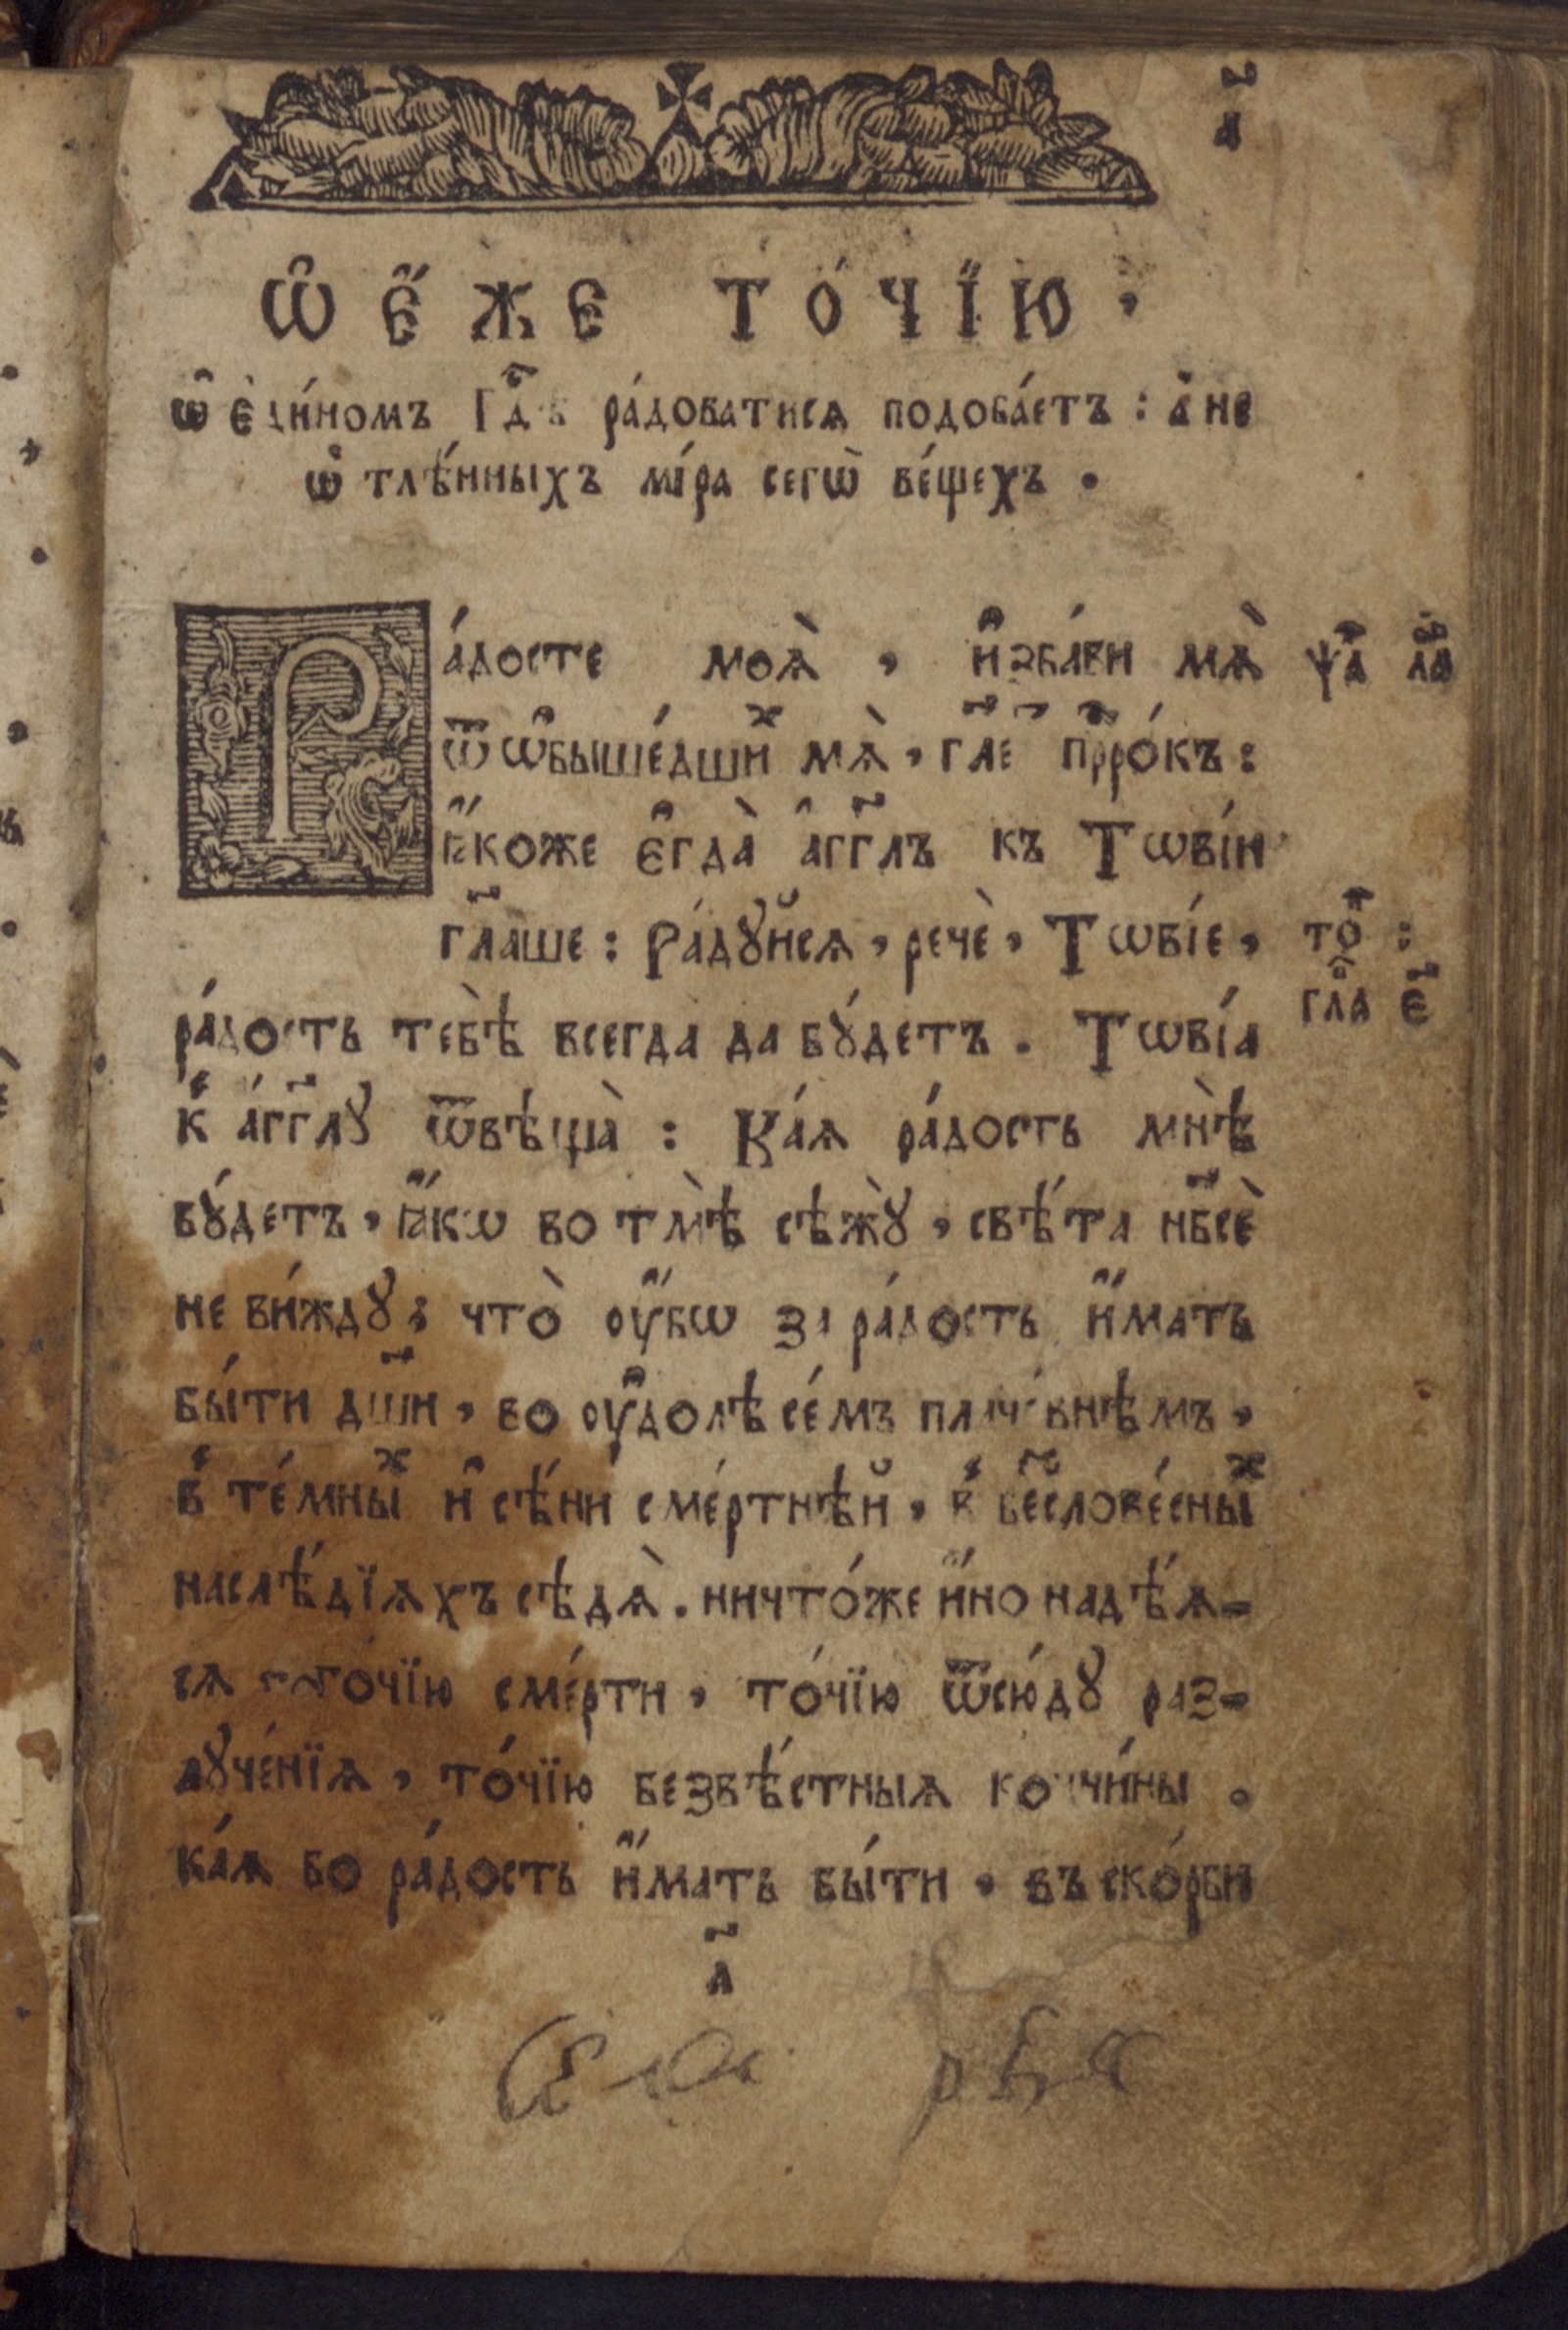 а҃
Ѡ҆ є҆́же то́чїю,
ѡ҆ є҆ди́номъ Гд҇ѣ ра́доватисѧ подоба́етъ: а҆ не
ѡ҆ тлѣ́нныхъ мі́ра сегѡ̀ ве́щехъ.
Ра́досте моѧ̀, и҆зба́ви мѧ̀ ѱаⷧ҇ ла҃
ѿ ѡ҆быше́дшиⷯ мѧ̀, гл҃е прⷪ҇ро́къ:
ꙗ҆́коже є҆гда̀ а҆гг҃лъ къ Тѡві́и
гл҃аше: Ра́дꙋйсѧ, речѐ, Тѡві́е, тоⷡ҇:
ра́дость тебѣ̀ всегда да бꙋ́детъ. Тѡві́а глаⷡ҇ є҃
к̾ а́гг҃лꙋ ѿвѣща̀: Ка́ѧ ра́дость мнѣ̀
бꙋ́детъ, ꙗ҆́кѡ во тмѣ̀ сѣжꙋ̀, свѣ́та нб҃сѐ
не ви́ждꙋ; что̀ ᲂу҆́бѡ за ра́дость и҆́мать
бы́ти дш҃и, во ᲂу҆долѣ се́мъ плаче́внѣмъ,
в̾ те́мныⷯ и҆ сѣ́ни сме́ртнѣй, в̾ бесⷧ҇лове́сныⷯ
наслѣ́дїѧхъ сѣдѧ̀. ничто́же и҆́но надѣ́ѧ-
сѧ то́чїю сме́рти, то́чїю ѿсю́дꙋ раз-
лꙋче́нїѧ, то́чїю безвѣ́стныѧ кончи́ны.
ка́ѧ бо ра́дость и҆́мать бы́ти, въ ско́рби
а҃